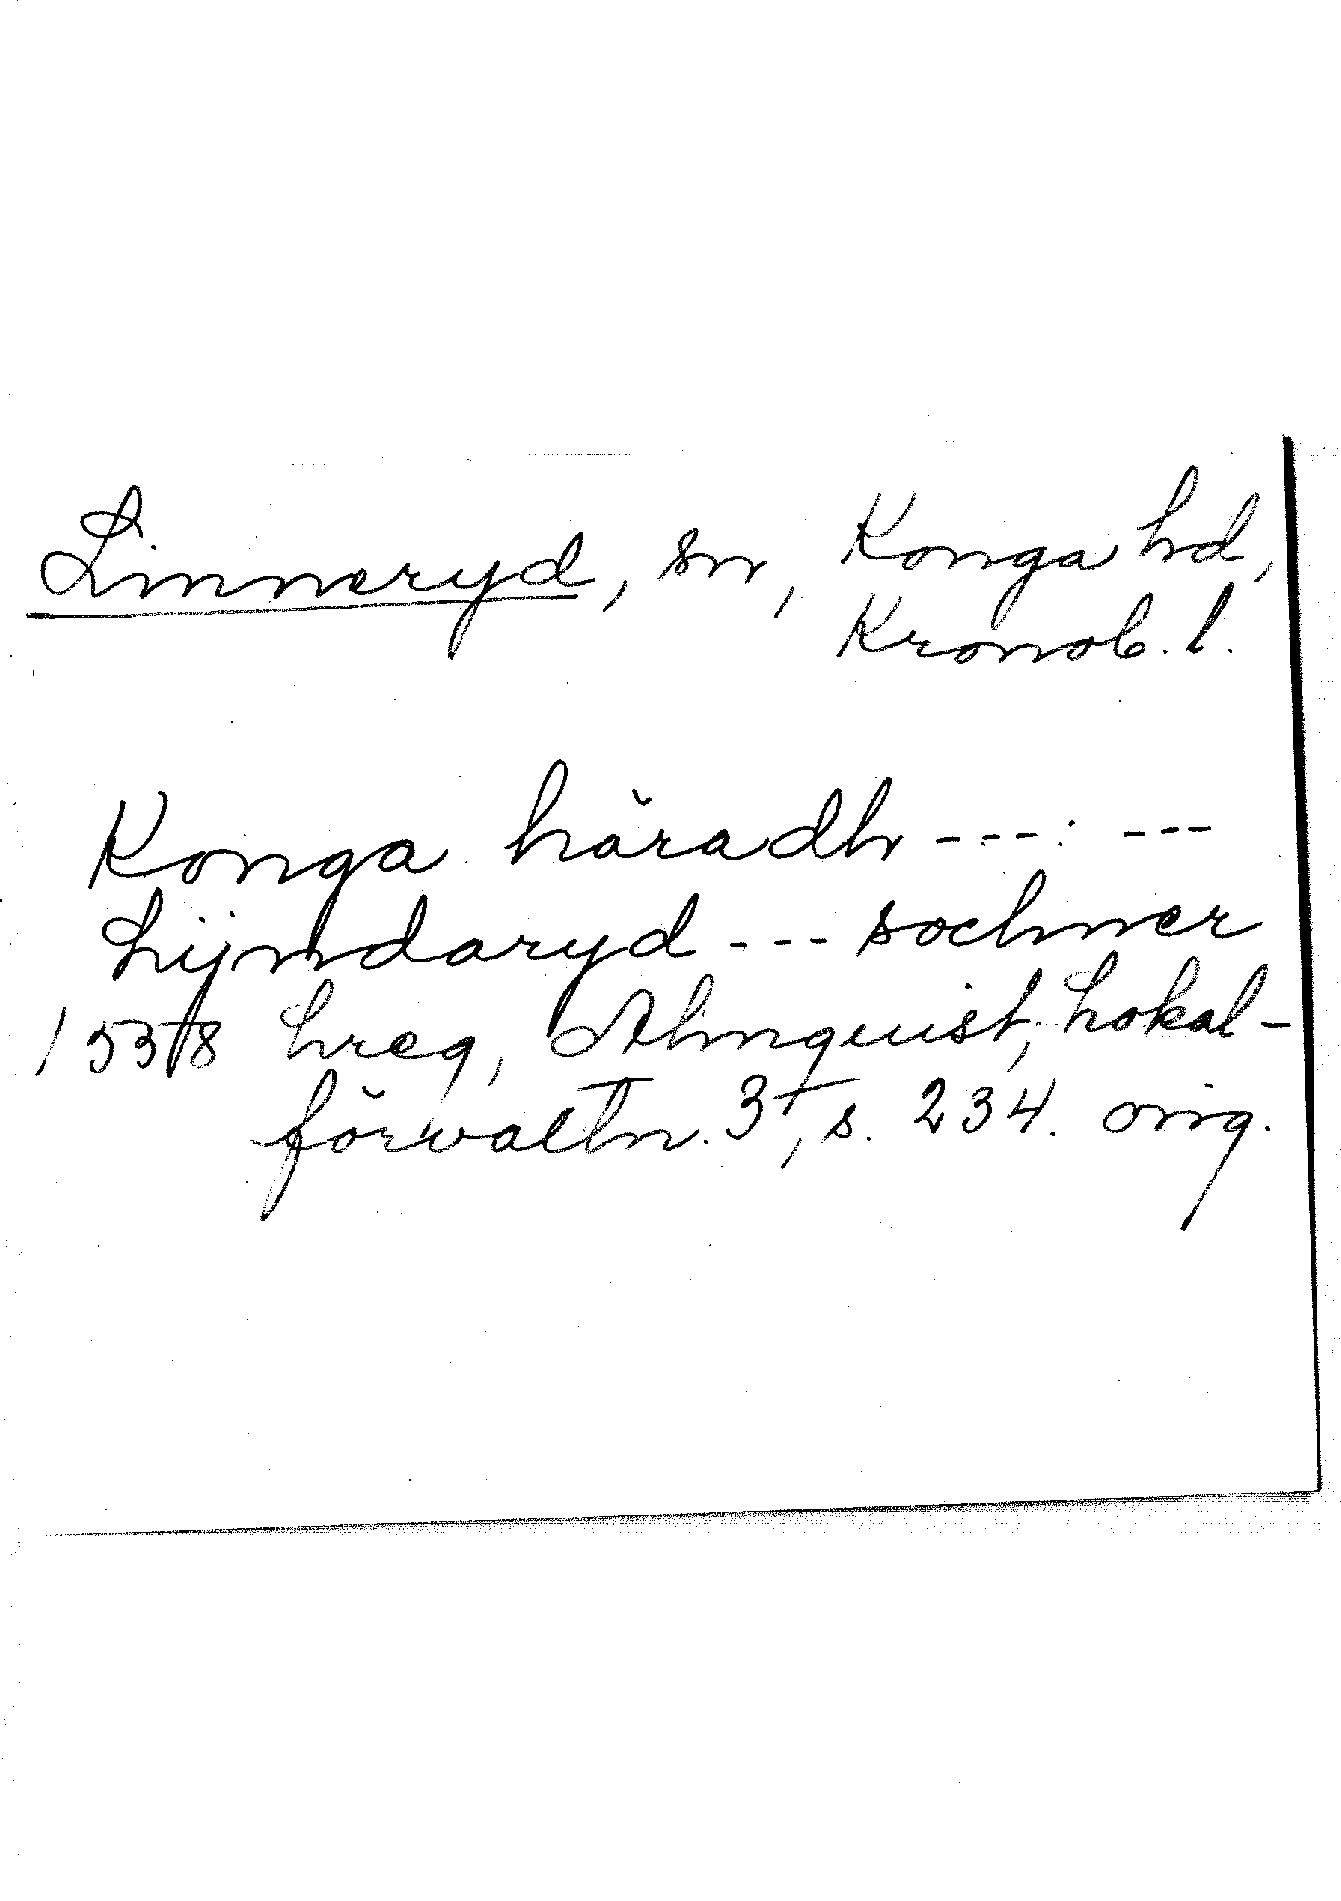 Linneryd, sn, Konga hd,
Kronob. l.
Konga häradh ---: ---
Lijndaryd --- sochner
1538 Lreg, Almquist, Lokal-
förvaltn. 3, s. 234. orig.